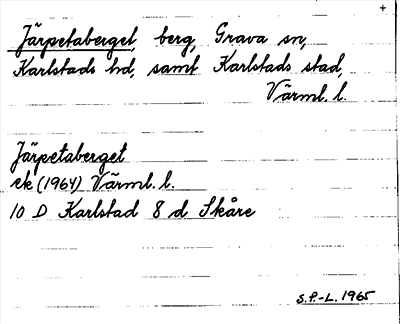 +
Järpetaberget, berg, Grava sn,
Karlstads hd, samt Karlstads stad,
Värml. l.
Järpetaberget
ek (1964) Värml. l.
10 D Karlstad 8 d Skåre
S.P.-L. 1965